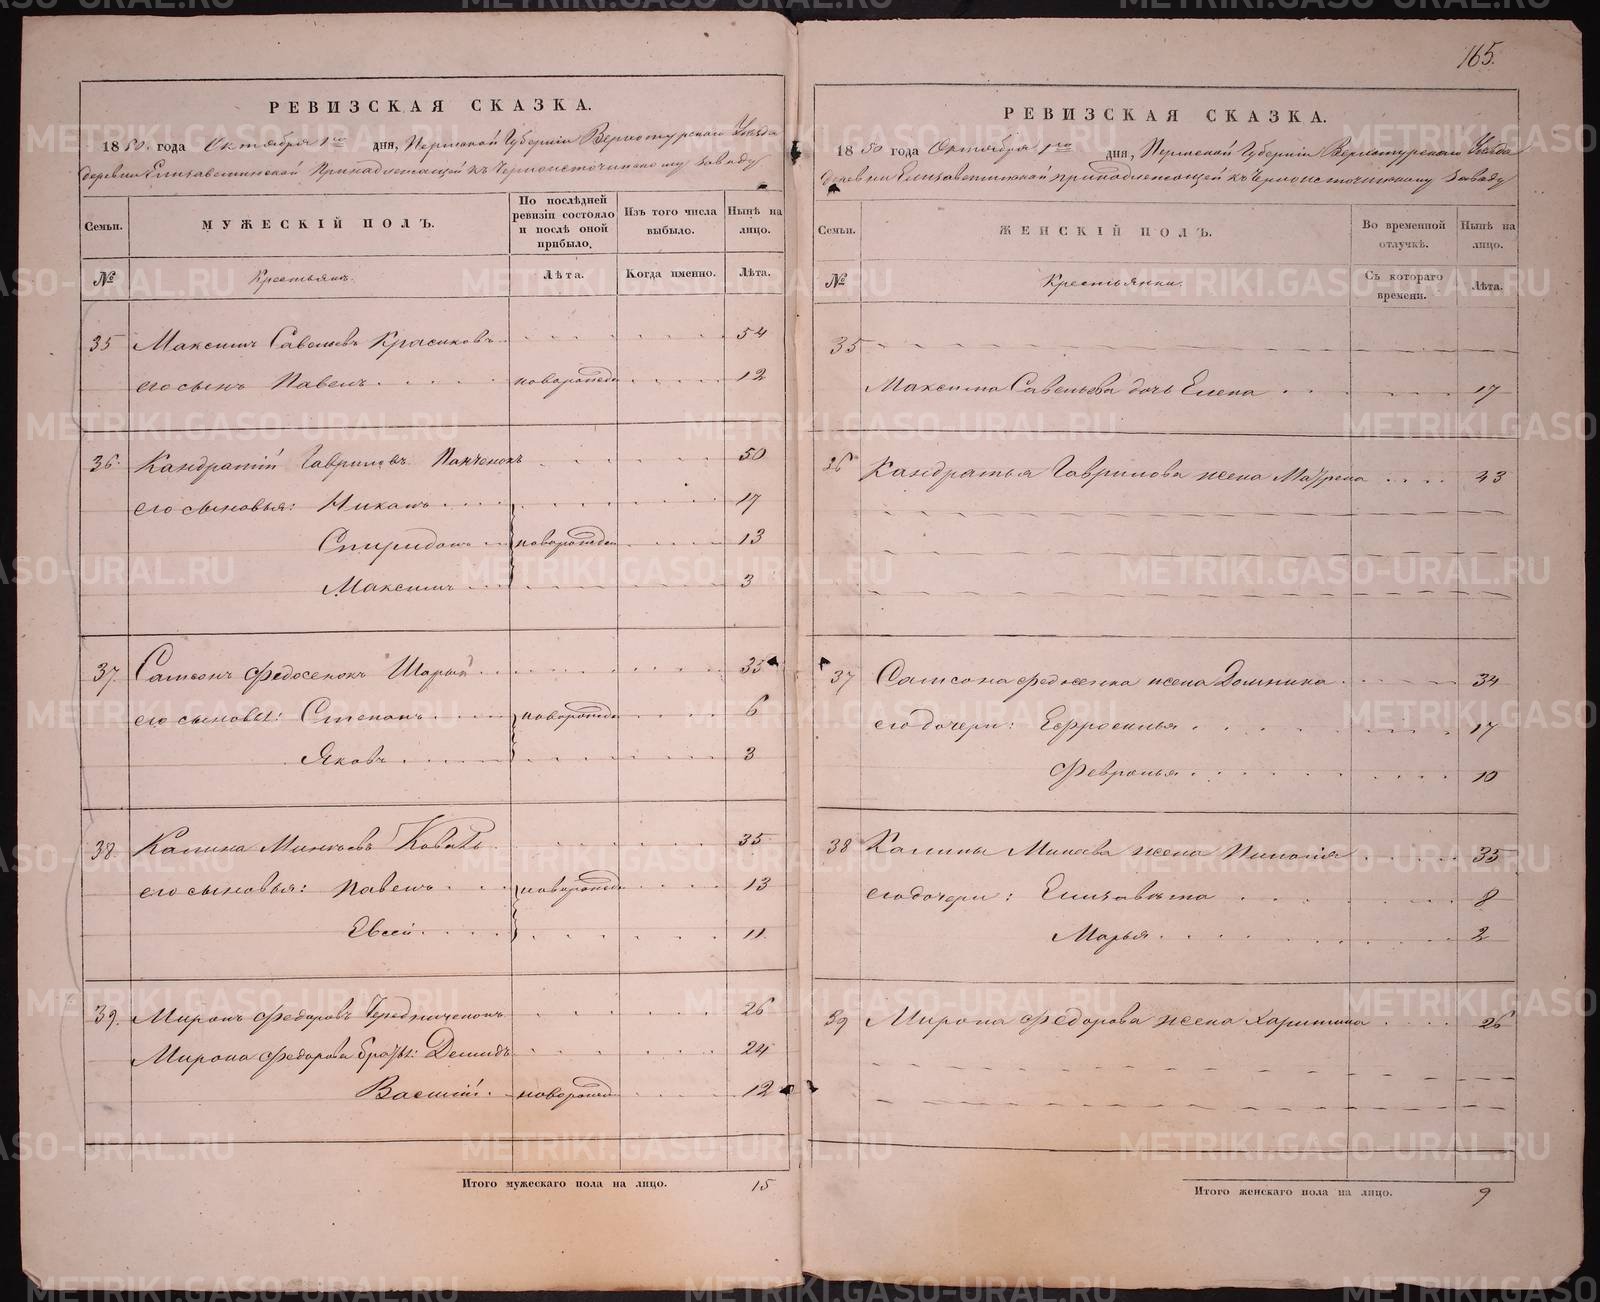 165.
РЕВИЗСКАЯ СКАЗКА.
1850 года Октября 1го дня, Пермской Губерніи Верхотурскаго Уѣзда
деревни Елизаветинской Принадлежащей къ Черноисточинскому заводу
Семьи. МУЖЕСКІЙ ПОЛЪ. По послѣдней ревизіи состояло и послѣ оной прибыло. Изъ того числа выбыло. Нынѣ на лицо.
№ Крестьянъ. Лѣта. Когда именно. Лѣта.
35 Максимъ Савельевъ Красиковъ 54
его сынъ Павелъ новорожден 12
36. Кандратій Гавриловъ 50
его сыновья: Никонъ 17
Спиридонъ новорожден 13
Максимъ 3
37. Самсонъ Федосенокъ Шарый 35
его сыновья: Степанъ новорожден 6
Яковъ 3
38. Калина Минѣевъ Коваль 35
его сыновья: Павелъ новорожден 13
Евсей 11
39. Миронъ Федоровъ Чередниченокъ 26
Мирона Федорова братья: Демидъ 24
Василій новорожден 12
Итого мужескаго пола на лицо. 15
РЕВИЗСКАЯ СКАЗКА.
1850 года Октября 1го дня, Пермской Губерніи Верхотурскаго Уѣзда
Деревни Елизаветинской принадлежащей къ Черноисточинскому заводу
Семьи. ЖЕНСКІЙ ПОЛЪ. Во временной отлучкѣ. Нынѣ на лицо.
№ Крестьянки. Съ котораго времени. Лѣта.
35
Максима Савельева дочь Елена 17
36 Кандратья Гаврилова жена Маѵрена 43
37 Самсона Федосенка жена Домника 34
его дочери: Ефросинья 17
Февронья 10
38 Калины Минеева жена 35
его дочери: Елизавѣта 8
Марья 2
39 Мирона Федорова жена Харитина 26
Итого женскаго пола на лицо. 9
METRIKI.GASO-URAL.RU